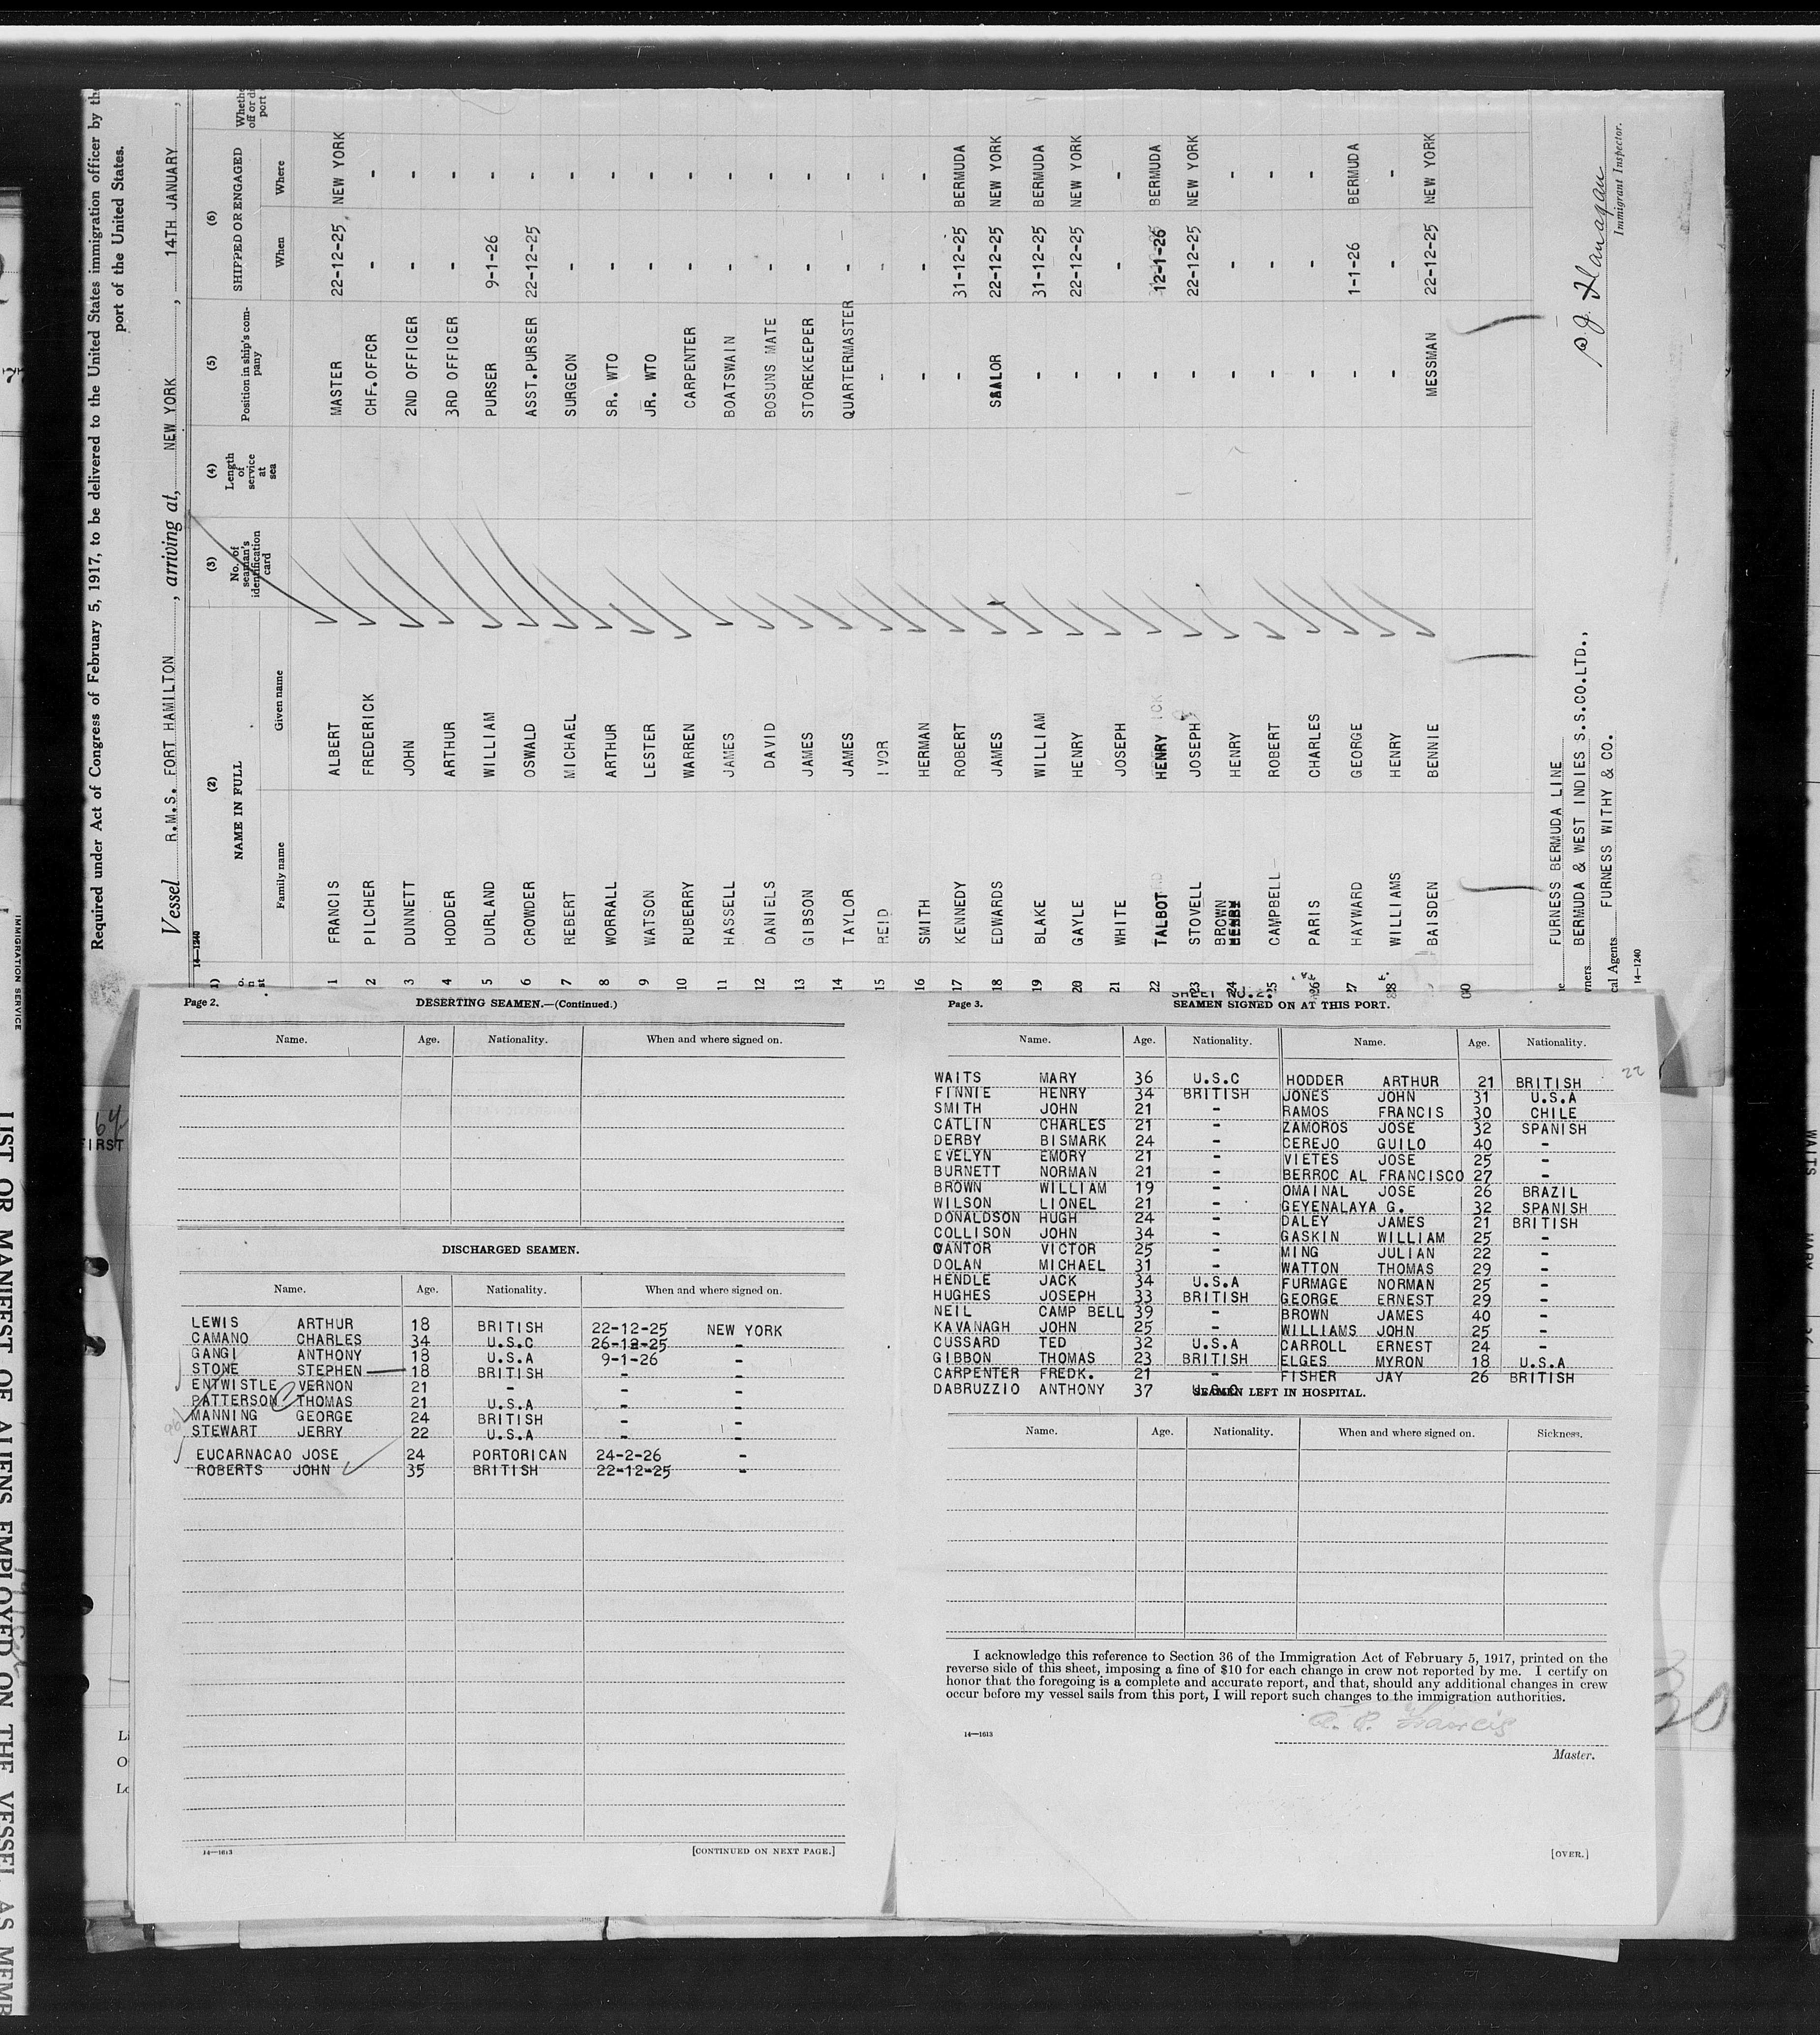 Required under Act of Congress of February 5, 1917, to be delivered to the United States immigration officer by th
port of the United States.
Vessel R.M.S. FORT HAMILTON, arriving at, NEW YORK, 14TH JANUARY,
14—1240
(2) (3) (4) (5) (6)
NAME IN FULL No. of seaman's identification card Length of service at sea Position in ship's company SHIPPED OR ENGAGED
Family name Given name When Where
1 FRANCIS ALBERT MASTER 22-12-25, NEW YORK
2 PILCHER FREDERICK CHF.OFFCR - -
3 DUNNETT JOHN 2ND OFFICER - -
4 HODDER ARTHUR 3RD OFFICER - -
5 DURLAND WILLIAM PURSER 9-1-26 -
6 CROWDER OSWALD ASST.PURSER 22-12-25 -
7 REBERT MICHAEL SURGEON - -
8 WORRALL ARTHUR SR. WTO - -
9 WATSON LESTER JR. WTO - -
10 RUBERRY WARREN CARPENTER - -
11 HASSELL JAMES BOATSWAIN - -
12 DANIELS DAVID BOSUNS MATE - -
13 GIBSON JAMES STOREKEEPER - -
14 TAYLOR JAMES QUARTERMASTER - -
15 REID IVOR - - -
16 SMITH HERMAN - - -
17 KENNEDY ROBERT - 31-12-25 BERMUDA
18 EDWARDS JAMES SAILOR 22-12-25 NEW YORK
19 BLAKE WILLIAM - 31-12-25 BERMUDA
20 GAYLE HENRY - 22-12-25 NEW YORK
21 WHITE JOSEPH - - -
22 TALBOT HENRY - 12-1-26 BERMUDA
23 STOVELL JOSEPH - 22-12-25 NEW YORK
24 BROWN HENRY - - -
25 CAMPBELL ROBERT - - -
26 PARIS CHARLES - - -
27 HAYWARD GEORGE - 1-1-26 BERMUDA
28 WILLIAMS HENRY - - -
BAISDEN BENNIE MESSMAN 22-12-25 NEW YORK
FURNESS BERMUDA LINE
BERMUDA & WEST INDIES S.S.CO.LTD.,
cal Agents FURNESS WITHY & CO.
14—1240
Immigrant Inspector.
Page 2.
DESERTING SEAMEN.—(Continued.)
Name. Age. Nationality. When and where signed on.
DISCHARGED SEAMEN.
Name. Age. Nationality. When and where signed on.
LEWIS ARTHUR 18 BRITISH 22-12-25 NEW YORK
CAMANO CHARLES 34 U.S.C 26-12-25 -
GANGI ANTHONY 18 U.S.A 9-1-26 -
STONE STEPHEN 18 BRITISH - -
ENTWISTLE VERNON 21 - - -
PATTERSON THOMAS 21 U.S.A - -
MANNING GEORGE 24 BRITISH - -
STEWART JERRY 22 U.S.A - -
EUCARNACAO JOSE 24 PORTORICAN 24-2-26 -
ROBERTS JOHN 35 BRITISH 22-12-25 -
14—1613
[CONTINUED ON NEXT PAGE.]
SHEET NO.2.
Page 3.
SEAMEN SIGNED ON AT THIS PORT.
Name. Age. Nationality. Name. Age. Nationality.
WAITS MARY 36 U.S.C HODDER ARTHUR 21 BRITISH 22
FINNIE HENRY 34 BRITISH JONES JOHN 31 U.S.A
SMITH JOHN 21 - RAMOS FRANCIS 30 CHILE
CATLIN CHARLES 21 - ZAMOROS JOSE 32 SPANISH
DERBY BISMARK 24 - CEREJO GUILO 40 -
EVELYN EMORY 21 - VIETES JOSE 25 -
BURNETT NORMAN 21 - BERROC AL FRANCISCO 27 -
BROWN WILLIAM 19 - OMAINAL JOSE 26 BRAZIL
WILSON LIONEL 21 - GEYENALAYA G. 32 SPANISH
DONALDSON HUGH 24 - DALEY JAMES 21 BRITISH
COLLISON JOHN 34 - GASKIN WILLIAM 25 -
CANTOR VICTOR 25 - MING JULIAN 22 -
DOLAN MICHAEL 31 - WATTON THOMAS 29 -
HENDLE JACK 34 U.S.A FURMAGE NORMAN 25 -
HUGHES JOSEPH 33 BRITISH GEORGE ERNEST 29 -
NEIL CAMP BELL 39 - BROWN JAMES 40 -
KAVANAGH JOHN 25 - WILLIAMS JOHN 25 -
CUSSARD TED 32 U.S.A CARROLL ERNEST 24 -
GIBBON THOMAS 23 BRITISH ELGES MYRON 18 U.S.A
CARPENTER FREDK. 21 - FISHER JAY 26 BRITISH
DABRUZZIO ANTHONY 37
SEAMEN LEFT IN HOSPITAL.
Name. Age. Nationality. When and where signed on. Sickness.
I acknowledge this reference to Section 36 of the Immigration Act of February 5, 1917, printed on the
reverse side of this sheet, imposing a fine of $10 for each change in crew not reported by me. I certify on
honor that the foregoing is a complete and accurate report, and that, should any additional changes in crew
occur before my vessel sails from this port, I will report such changes to the immigration authorities.
Francis
14—1613
Master.
[OVER.]
IMMIGRATION SERVICE
LIST OR MANIFEST OF ALIENS EMPLOYED ON THE VESSEL AS MEMB
FIRST